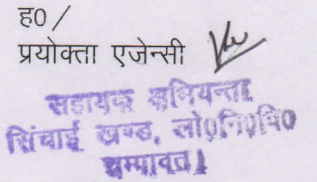 ह0/
प्रयोक्ता एजेन्सी
सहायक अभियन्ता
सिंचाई खण्ड, लो०नि०वि०
चम्पावत।